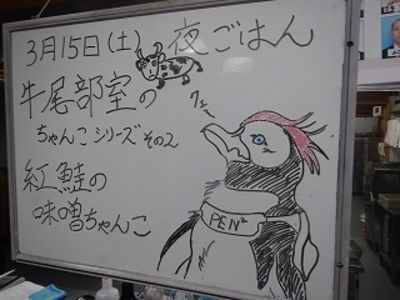 3月15日(土) 夜ごはん
牛尾部室の
ちゃんこシリーズ その2
紅鮭の
味噌ちゃんこ
クェー
PEN²